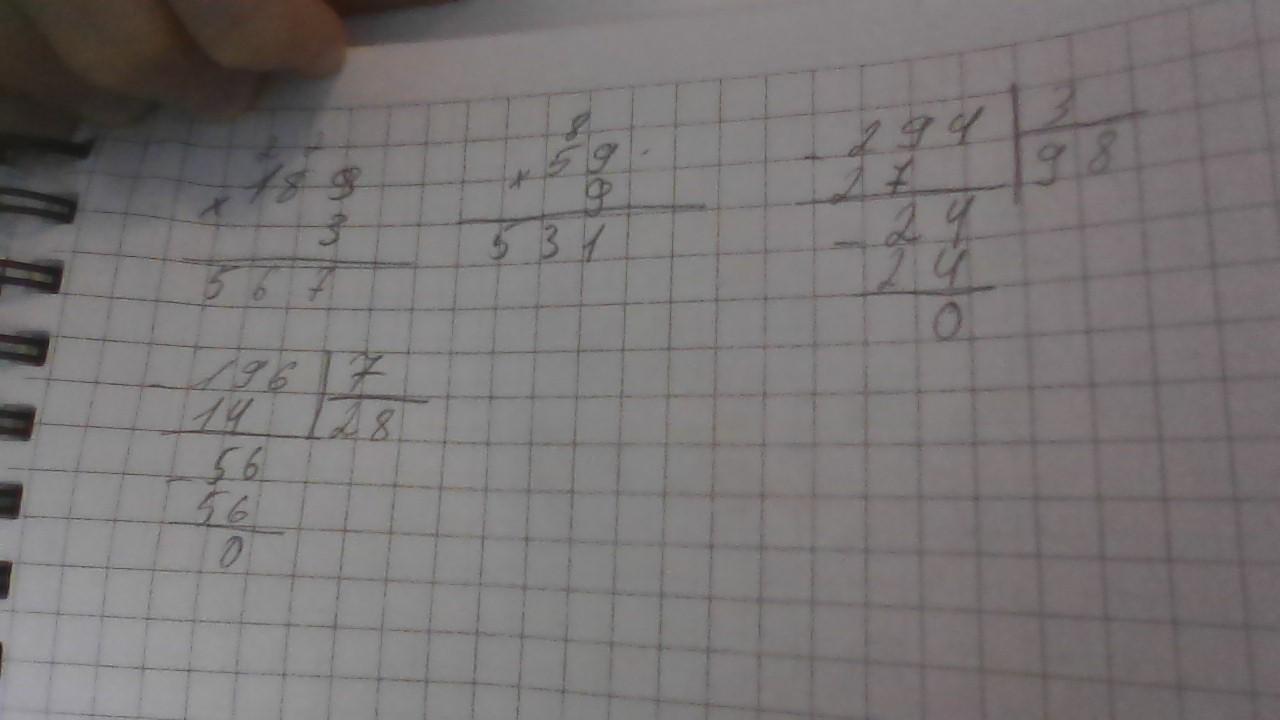 2 2
× 189
3
567
8
× 59
9
531
- 294 | 3
27 | 98
- 24
24
0
- 196 | 7
14 | 28
- 56
56
0